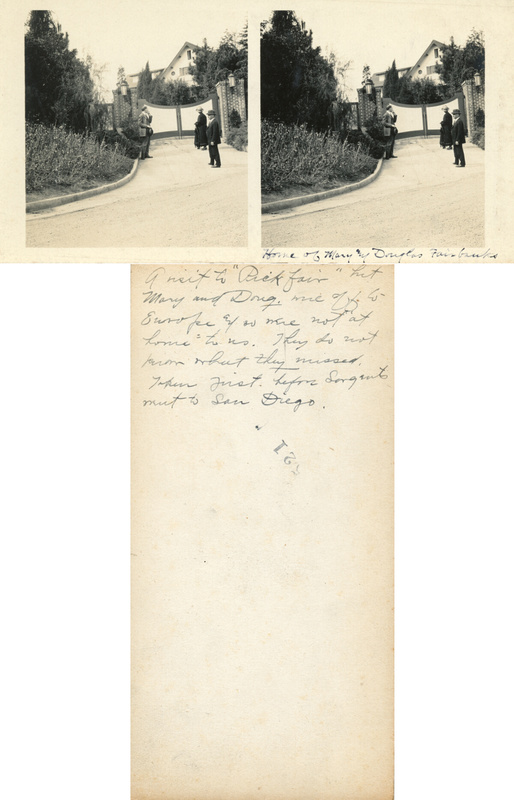 Home of Mary & Douglas Fairbanks
A visit to "Pickfair" but
Mary and Doug. were off to
Europe & so were not "at
home" to us. They do not
know what they missed.
Taken just before Sargents
went to San Diego.